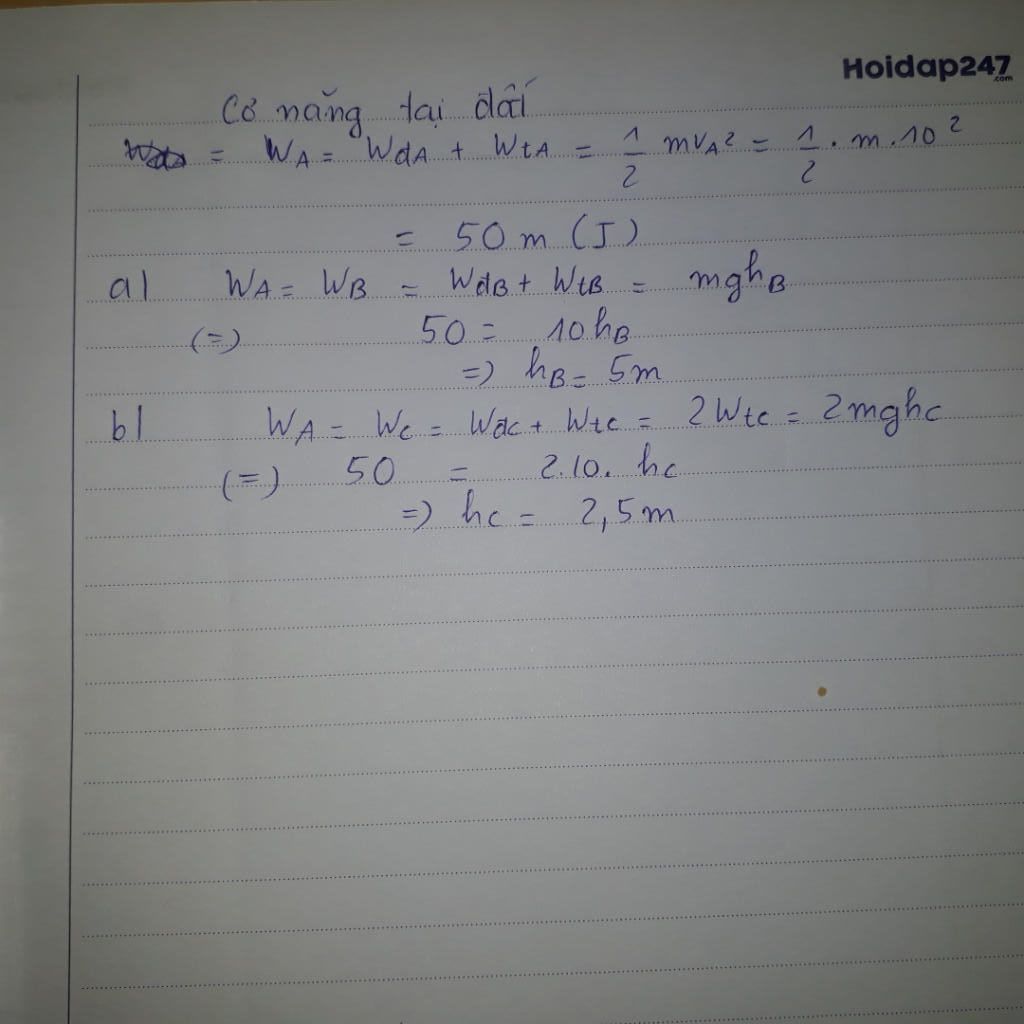 Hoidap247
.com
Cơ năng tại đất
= WA = WdA + WtA = 1/2 mvA² = 1/2 . m . 10²
= 50m (J)
a) WA = WB = WdB + WtB = mghB
(=) 50 = 10hB
=) hB = 5m
b) WA = Wc = Wdc + Wtc = 2Wtc = 2mghc
(=) 50 = 2.10. hc
=) hc = 2,5m